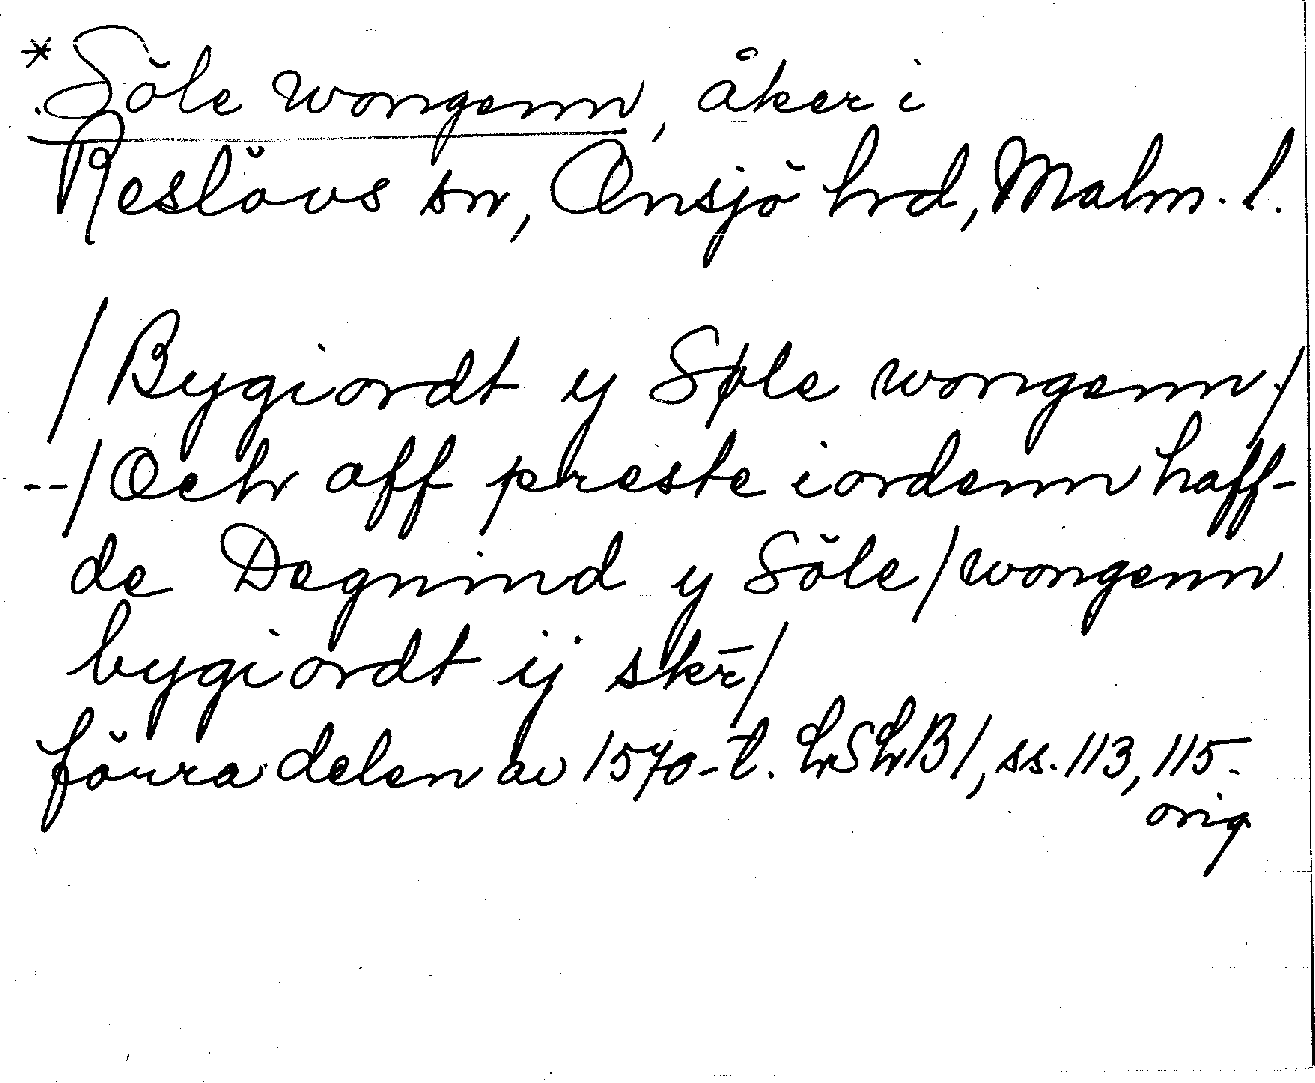 * Söle wongenn, åker i
Reslövs sn, Onsjö hrd, Malm. l.
/ Bygiordt y Søle wongenn /
--/ Och aff preste iordenn haff-
de Degnind y Söle / wongenn
bygiordt ij skr̄ /
förra delen av 1570-t. LSLB 1, ss. 113, 115.
orig